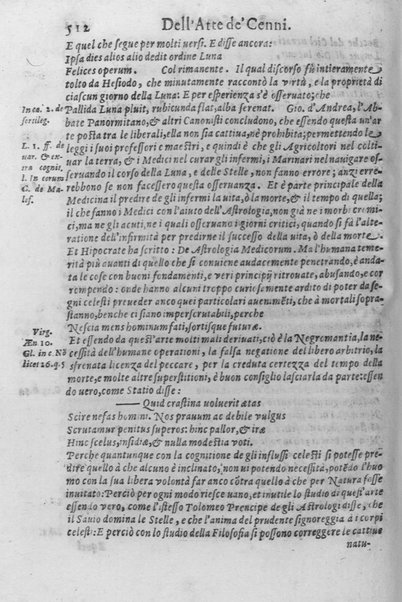 512 Dell'Arte de' Cenni.
E quel che segue per molti uersi. E disse ancora:
Ipsa dies alios alio dedit ordine Luna
Felices operum. Col rimanente. Il qual discorso fù intieramente
tolto da Hesiodo, che minutamente raccontò la virtù, e la proprietà di
ciascun giorno della Luna: E per esperienza s'è osseruato; che
In ca. 2. de
sortileg.
Pallida Luna pluit, rubicunda flat, alba serenat. Gio. d'Andrea, l'Ab-
bate Panormitano, & altri Canonisti concludono, che essendo questa un'ar
te posta tra le liberali, ella non sia cattiua, nè prohibita; permettendo le
L. 1. ff. de
uar. & ex-
tra cognit.
l. in eorum
C. de Ma-
lef.
leggi i suoi professori e maestri, e quindi è che gli Agricoltori nel colti-
uar la terra, & i Medici nel curar gli infermi, i Marinari nel nauigare os-
seruando il corso della Luna, e delle Stelle, non fanno errore; anzi erre-
rebbono se non facessero questa osseruanza. Et è parte principale della
Medicina il predire de gli infermi la uita, ò la morte, & il tempo di quella;
il che fanno i Medici con l'aiuto dell'Astrologia, non già ne i morbi croni-
ci, ma ne gli acuti, ne i quali osseruano i giorni critici, quando si fà l'alte-
ratione dell'infirmità per predirne il successo della uita, ò della morte.
Et Hipocrate ha scritto: De Astrologia Medicorum. Ma l'humana teme-
rità più auanti di quello che si conuiene audacemente penetrando, è anda-
ta le cose con buoni fondamenti, e veri principij ritrouate, abusando, e cor
rompendo: onde hanno alcuni troppo curiosamente ardito di poter da se-
gni celesti preueder anco quei particolari auenimẽti, che à mortali soprà-
stanno, benche ci siano imperscrutabili, perche
Virg.
Æn 10.
Nescia mens hominum fati, sortisque futuræ.
Gl. in c. Nõ
licet 26. q. 5
Et essendo da quest'arte molti mali deriuati, ciò è la Negromantia, la ne-
cessità dell'humane operationi, la falsa negatione del libero arbitrio, la
sfrenata licenza del peccare, per la creduta certezza del tempo della
morte, e molte altre superstitioni, è buon consiglio lasciarla da parte: essen
do uero, come Statio disse:
—— Quid crastina volueret ætas
Scire nefas homini. Nos prauum ac debile vulgus
Scrutamur penitus superos: hinc pallor, & iræ
Hinc scelus, insidiæ, & nulla modestia voti.
Perche quantunque con la cognitione de gli influssi celesti si potesse pre-
dire quello à che alcuno è inclinato, non ui potendo necessità, potẽdo l'huo
mo con la sua libera volontà far anco cõtra quello à che per Natura fosse
inuitato: Perciò per ogni modo riesce uano, et inutile lo studio di quest'arte
essendo vero, come l'istesso Tolomeo Prencipe de gli Astrologi disse, che
il Sauio domina le Stelle, e che l'anima del prudente signoreggia à i corpi
celesti: E perciò con lo studio della Filosofia si possono correggere le cattiue
natu-